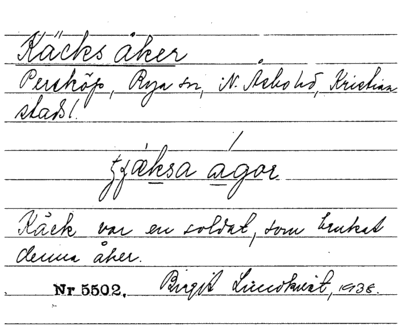 Käcks åker
Perstköp, Rya sn, N. Åsbo hd, Kristian
stads l.
tjäksa ágor
Käck var en soldat, som brukat
denna åker.
Nr 5502. Birgit Lundkvist, 1938.